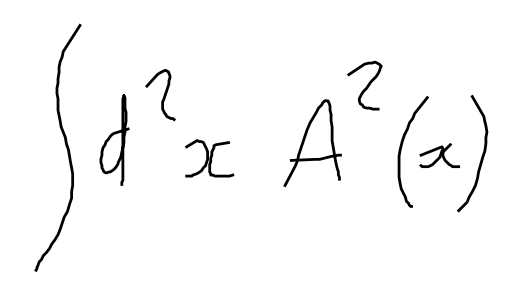 ∫d²x A²(x)